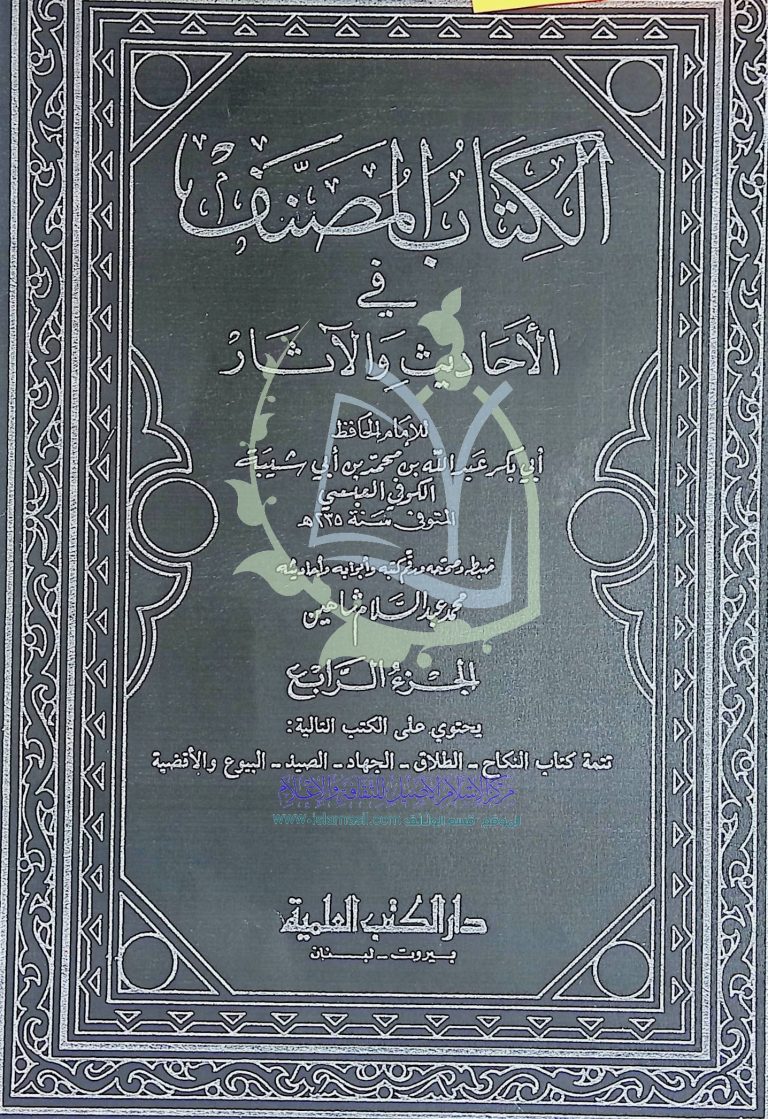 الكِتَابُ المُصَنَّفْ
في
الأحَاديثِ وَالآثَارْ
للإمام الحَافظ
أبي بكر عَبد الله بن محمّد بن أبي شيبة
الكوفي العبسي
المتوفى سَنة ٢٣٥هـ
ضبطه وصحّحه ورقّم كتبه وأبوابه وأحاديثه
محمد عبد السَّلام شاهين
الجزءُ الرَّابع
يحتوي على الكتب التالية:
تتمة كتاب النكاح ــ الطلاق ــ الجهاد ــ الصيد ــ البيوع والأقضية
مركز الإسلام الأصيل للثقافة والإعلام
الموقع قسم الوثائق
دار الكتب العلمية
بيروت ــ لبنان